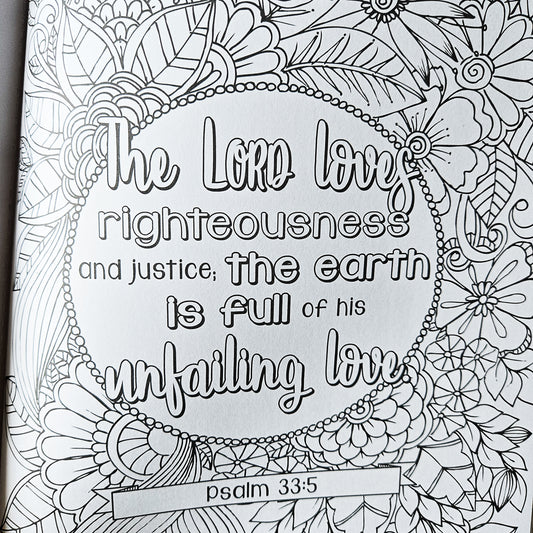 The LORD loves
righteousness
and justice; the earth
is full of his
unfailing love
Psalm 33:5